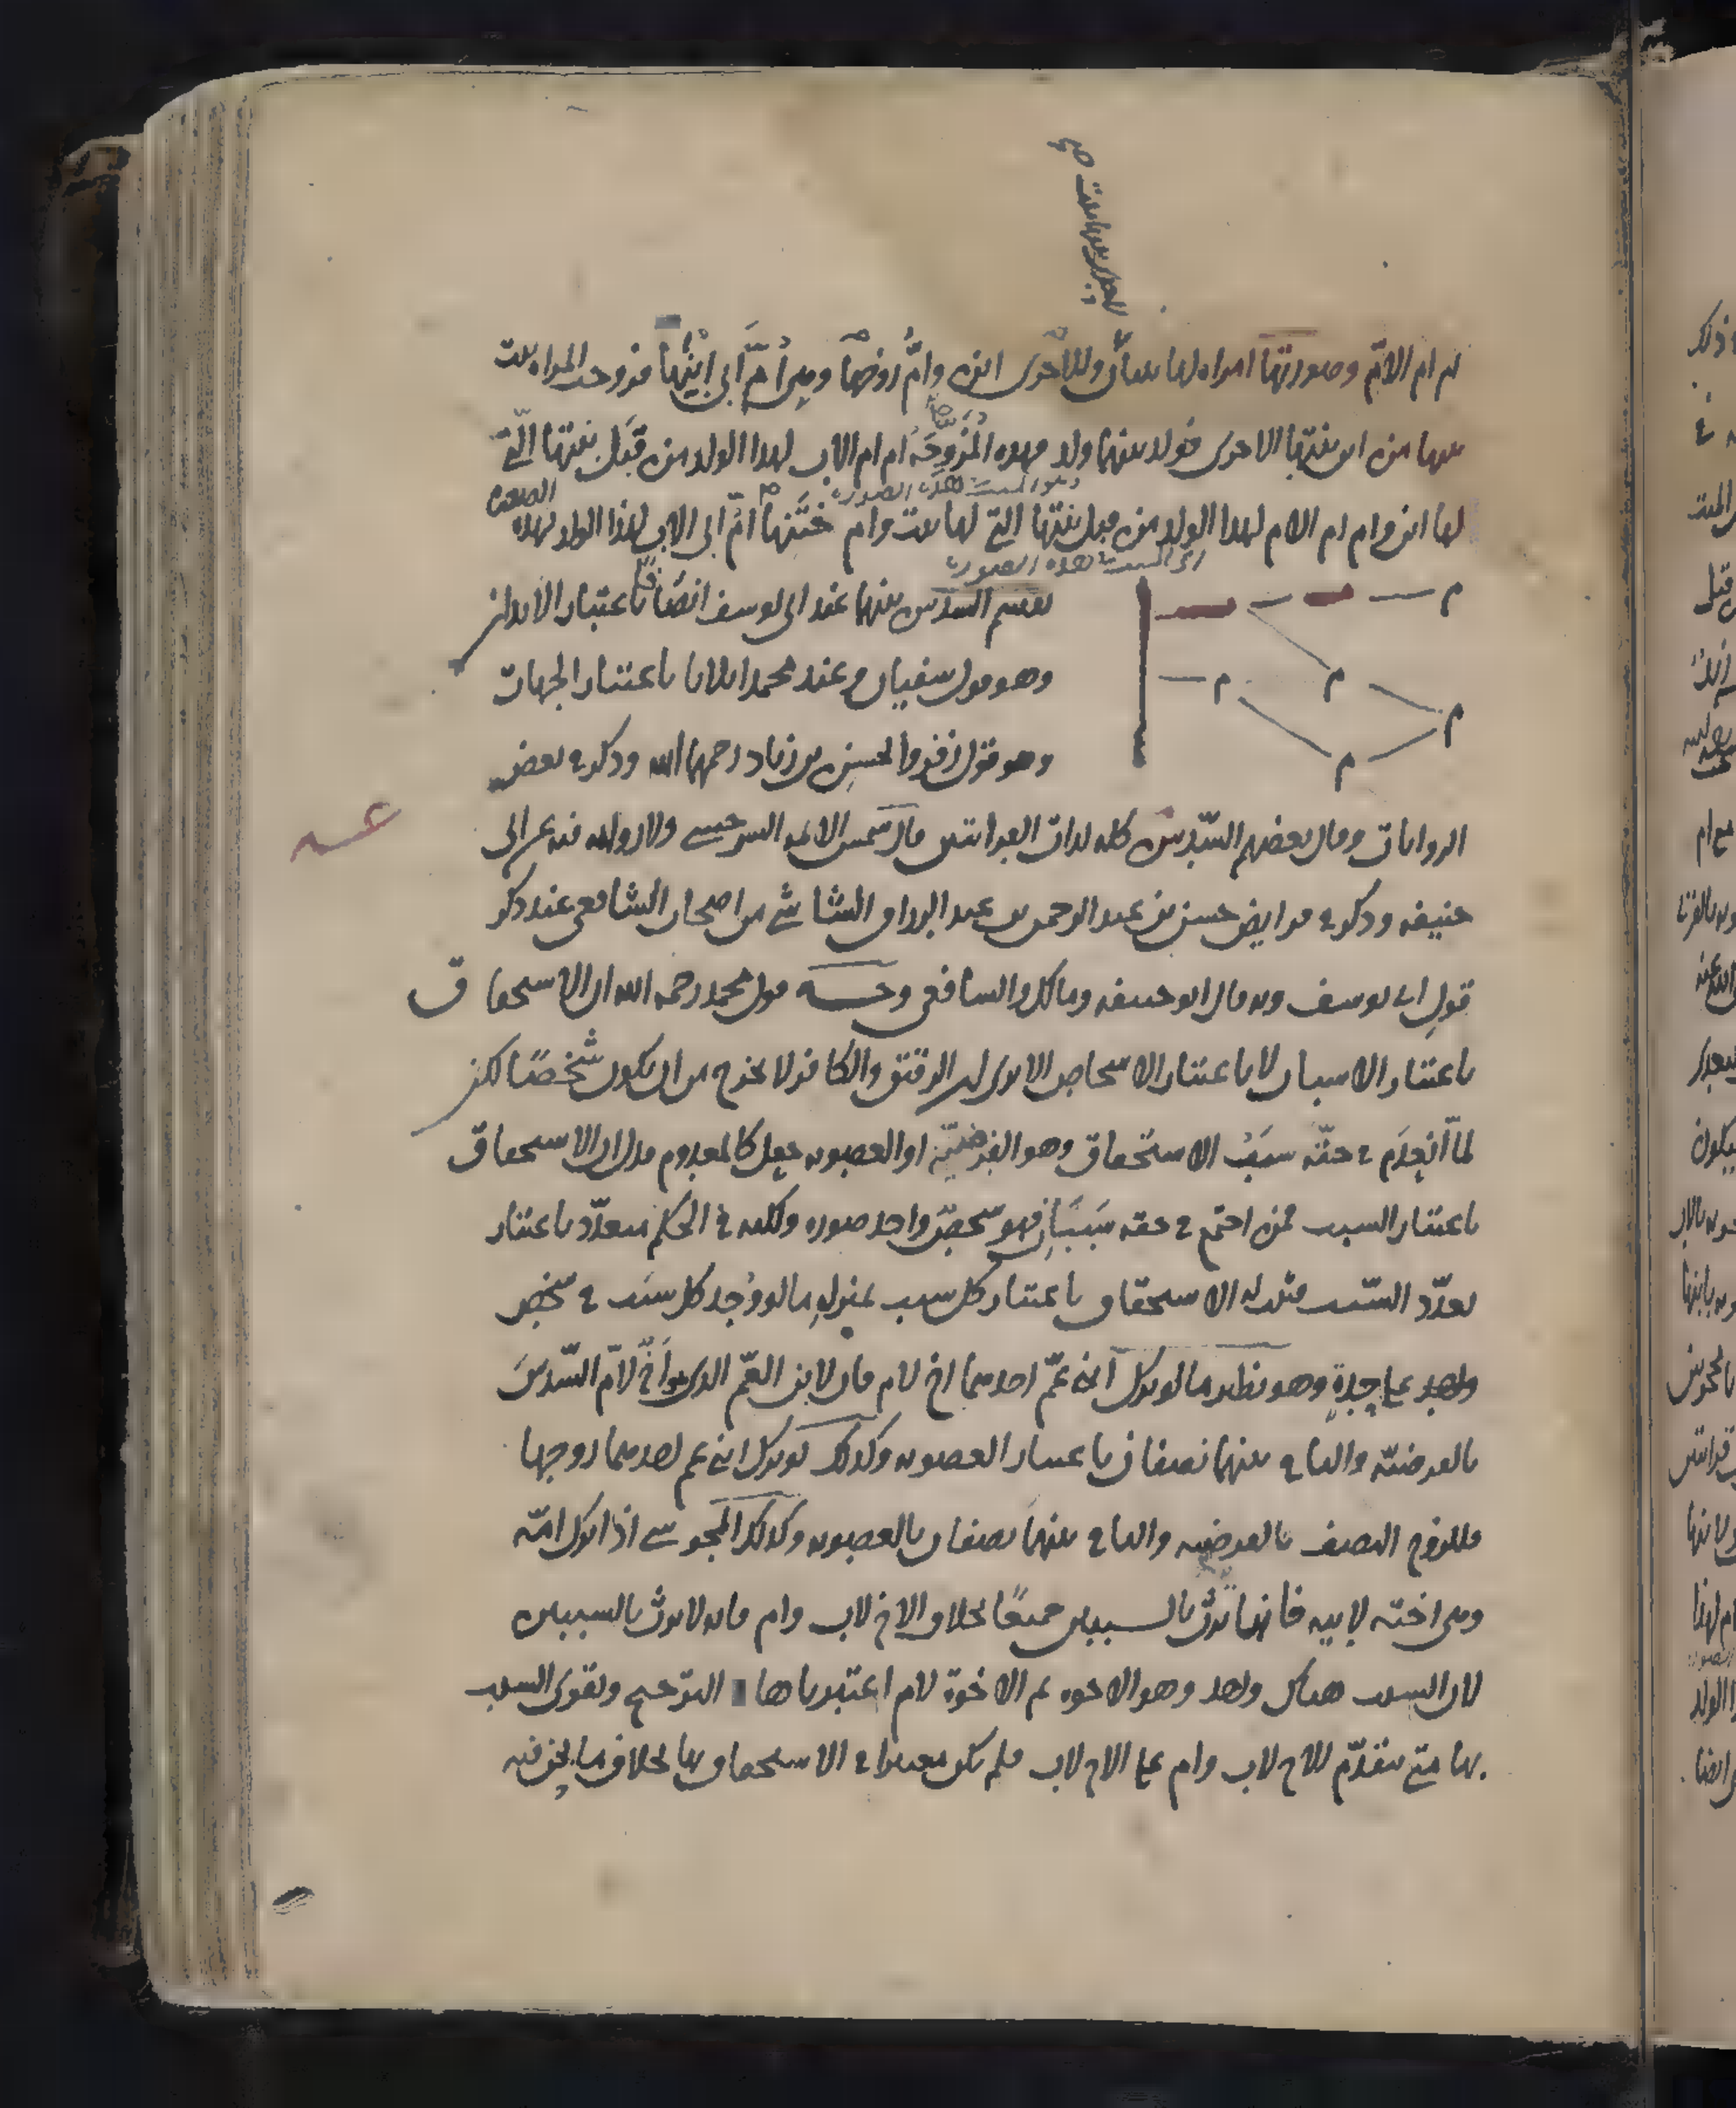 ام ام الام وصورتها امراه لها بنتان وللاخرى ابن وام زوجها وهي ام ابي ابنها فزوجت المراه بنت
بنتها من ابن بنتها الاخرى فولد بينهما ولد فهذه المزوجة ام ام الاب لهذا الولد من قبل بنتها التي
لها ابن وام ام الام لهذا الولد من قبل بنتها التي لها بنت وام ختنها ام ابي الاب لهذا الولد بهذه
الصورة
يقسم السدس بينهما عند ابي يوسف انصافا باعتبار الابدان
وهو قول سفيان وعند محمد اثلاثا باعتبار الجهات
وهو قول زفر والحسن بن زياد رحمهما الله وذكر في بعض
الروايات وقال بعضهم السدس كله لذات القرابتين قال شمس الائمه السرخسي ولا روايه فيه عن ابي
حنيفه وذكر في فرايض حسن بن عبد الرحمن بن عبد الرزاق الشاشي من اصحاب الشافعي عند ذكر
قول ابي يوسف وبه قال ابو حنيفه ومالك والشافعي وجه قول محمد رحمه الله ان الاستحقاق
باعتبار الاسباب لا باعتبار الاشخاص الا يرى ان الرقيق والكافر لا يخرج من ان يكون شخصا لكن
لما انعدم في حقه سبب الاستحقاق وهو الفرضية او العصوبه جعل كالمعدوم فدل ان الاستحقاق
باعتبار السبب فمن اجتمع في حقه سببان فهو شخص واحد صوره ولكنه في الحكم متعدد باعتبار
تعدد السبب فثبت له الاستحقاق باعتبار كل سبب بمنزلة ما لو وجد كل سبب في شخص
واحد على حدة وهو نظير ما لو ترك ابني عم احدهما اخ لام فان لابن العم الذي هو اخ لام السدس
بالفرضية والباقي بينهما نصفان باعتبار العصوبه وكذلك لو ترك ابني عم احدهما زوجها
فللزوج النصف بالفرضيه والباقي بينهما نصفان بالعصوبه وكذلك المجوسي اذا ترك امه
وهي اخته لابيه فانها ترث بالسببين جميعا بخلاف الاخ لاب وام فانه لا يرث بالسببين
لان السبب هناك واحد وهو الاخوه ثم الاخوة لام اعتبرناها الترجيح وتقوى السبب
بها حتى يتقدم الاخ لاب وام على الاخ لاب فلم تكن معتبرا في الاستحقاق بها بخلاف ما نحن فيه